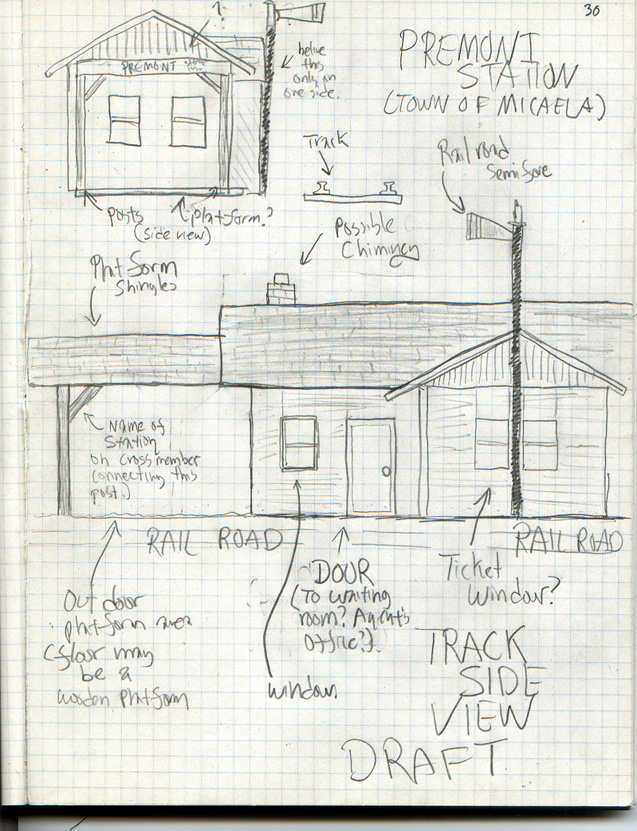 30
?
PREMONT
believe
this
only on
one side.
PREMONT
STATION
(TOWN OF MICAELA)
Track
Rail road
Semifore
posts
platform?
(side view)
Possible
Chiminey
Platform
Shingles
Name of
Station
on crossmember
connecting this
post.)
RAIL ROAD
RAIL ROAD
Out door
platform area
(floor may
be a
wooden platform
DOOR
(To waiting
room? Agent's
Office?)
Ticket
Window?
window
TRACK
SIDE
VIEW
DRAFT